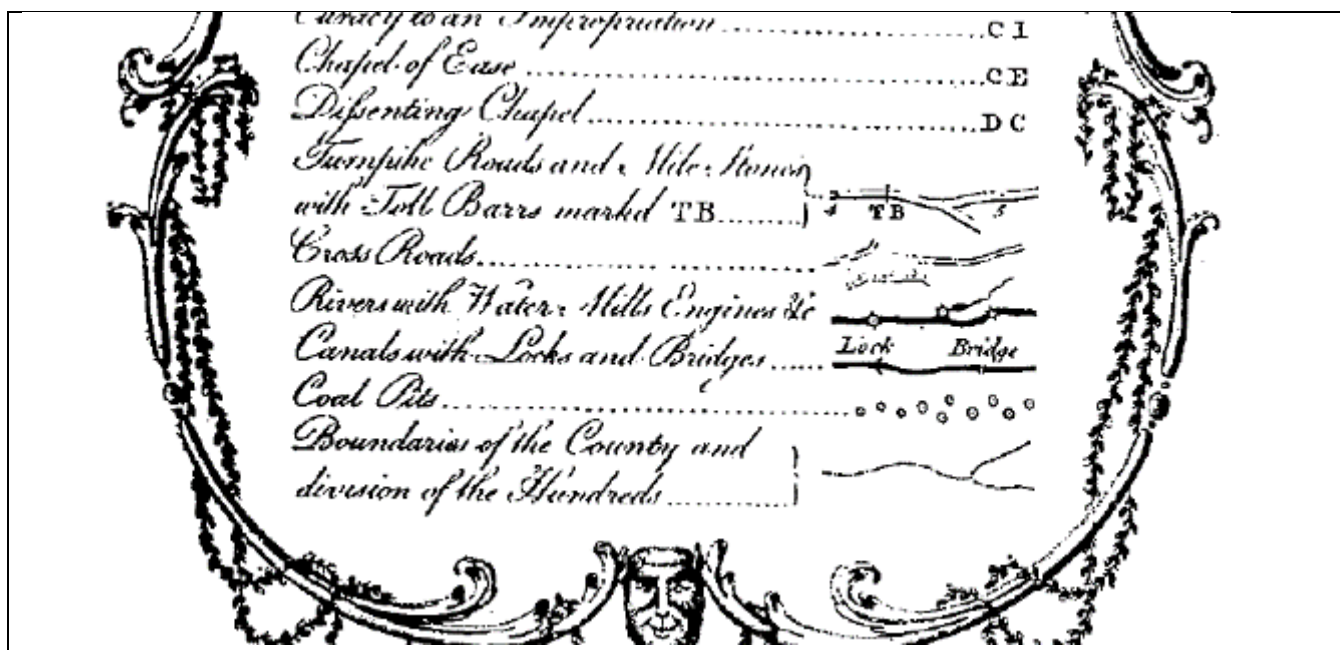 Curacy to an Impropriation ........................ C I
Chapel of Ease ........................ C E
Dissenting Chapel ........................ D C
Turnpike Roads and Mile Stones
with Toll Barrs markd TB ........
4 T B 5
Cross Roads ........................
Rivers with Water Mills Engines &c
Canals with Locks and Bridges ...... Lock Bridge
Coal Pits ........................
Boundaries of the County and
division of the Hundreds ........